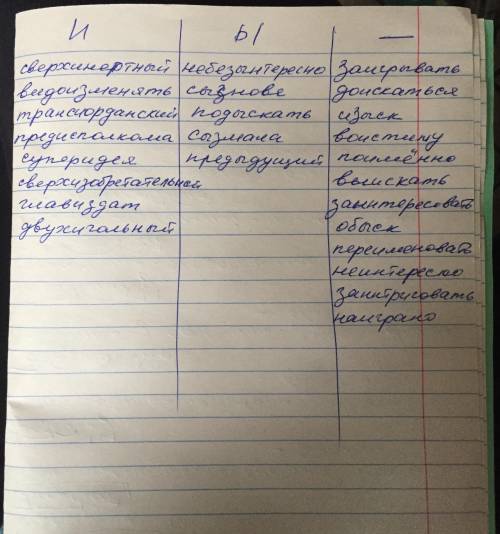 И Ы —
сверхинертный небезынтересно заигрывать
видоизменять сызнова доискаться
трансиорданский подыскать изыск
предисполкома сызмала воистину
суперидея предыдущий поимённо
сверхизобретательный выискать
главиздат заинтересовать
двухигольный обыск
переименовать
неинтересно
заинтриговать
наиграно